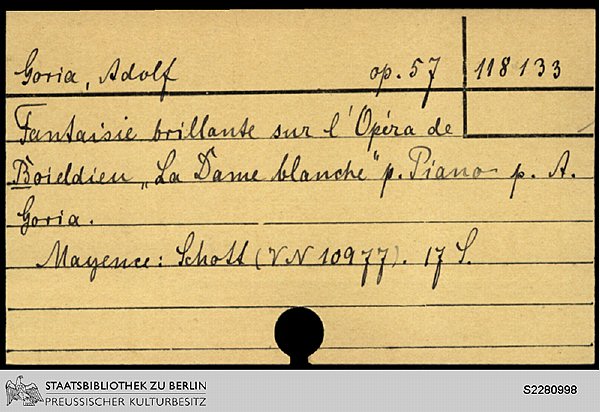 Goria, Adolf op. 57 118133
Fantaisie brillante sur l'Opéra de
Boieldieu „La Dame blanche“ p. Piano p. A.
Goria.
Mayence: Schott (VN 10977). 17 S.
STAATSBIBLIOTHEK ZU BERLIN
PREUSSISCHER KULTURBESITZ
S2280998